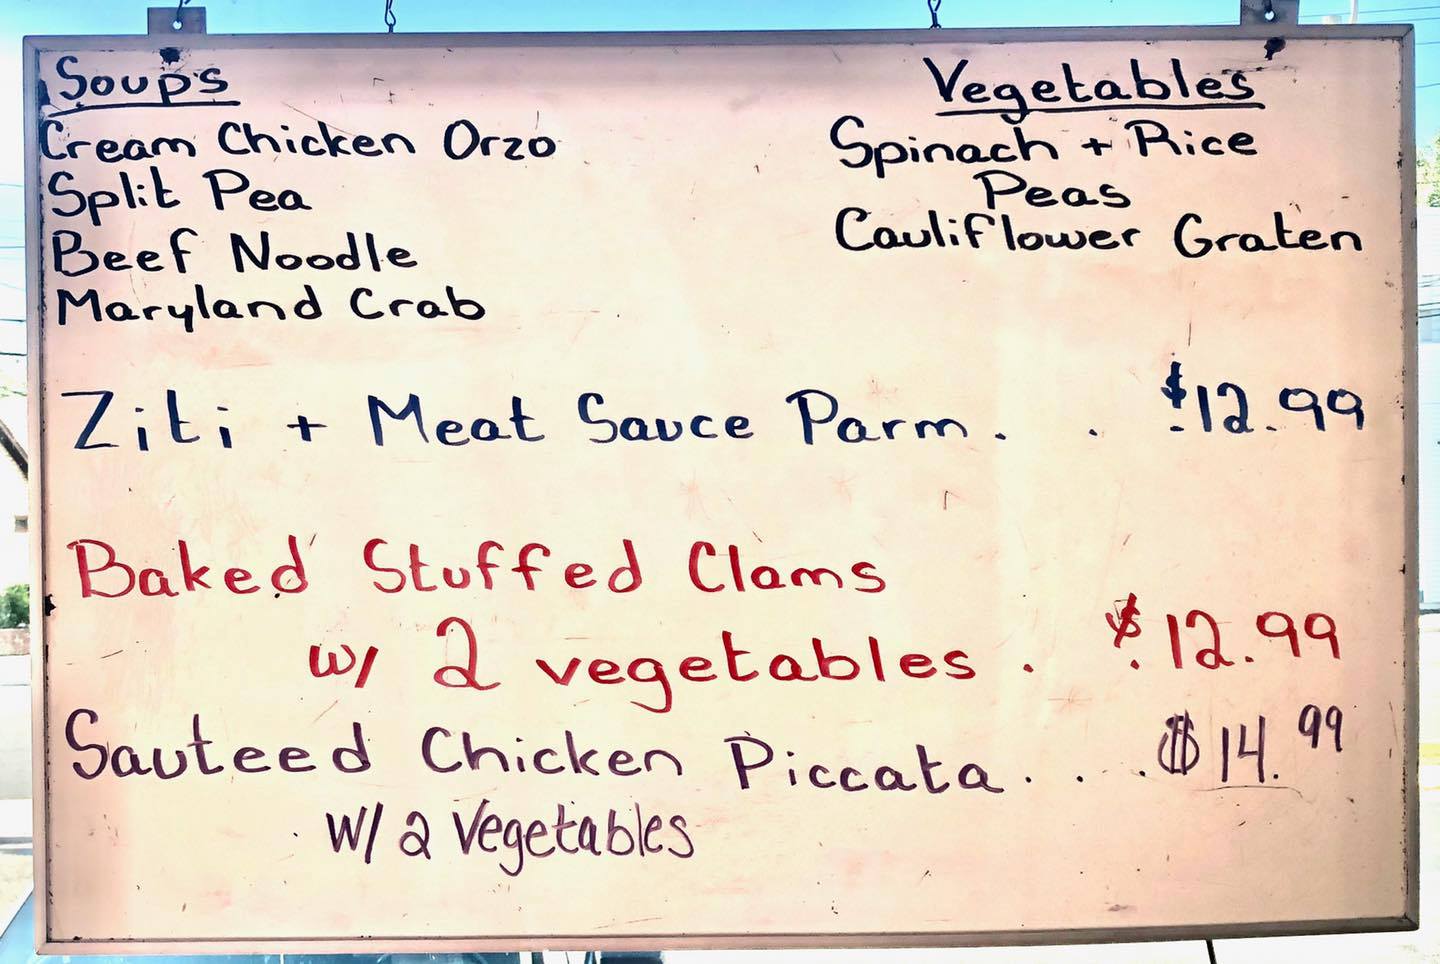 Soups
Cream Chicken Orzo
Split Pea
Beef Noodle
Maryland Crab
Vegetables
Spinach + Rice
Peas
Cauliflower Graten
Ziti + Meat Sauce Parm . . $12.99
Baked Stuffed Clams
w/ 2 vegetables . $12.99
Sauteed Chicken Piccata . . . . $14.99
w/ 2 vegetables